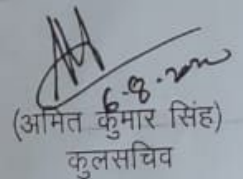 6.8.2020
(अमित कुमार सिंह)
कुलसचिव